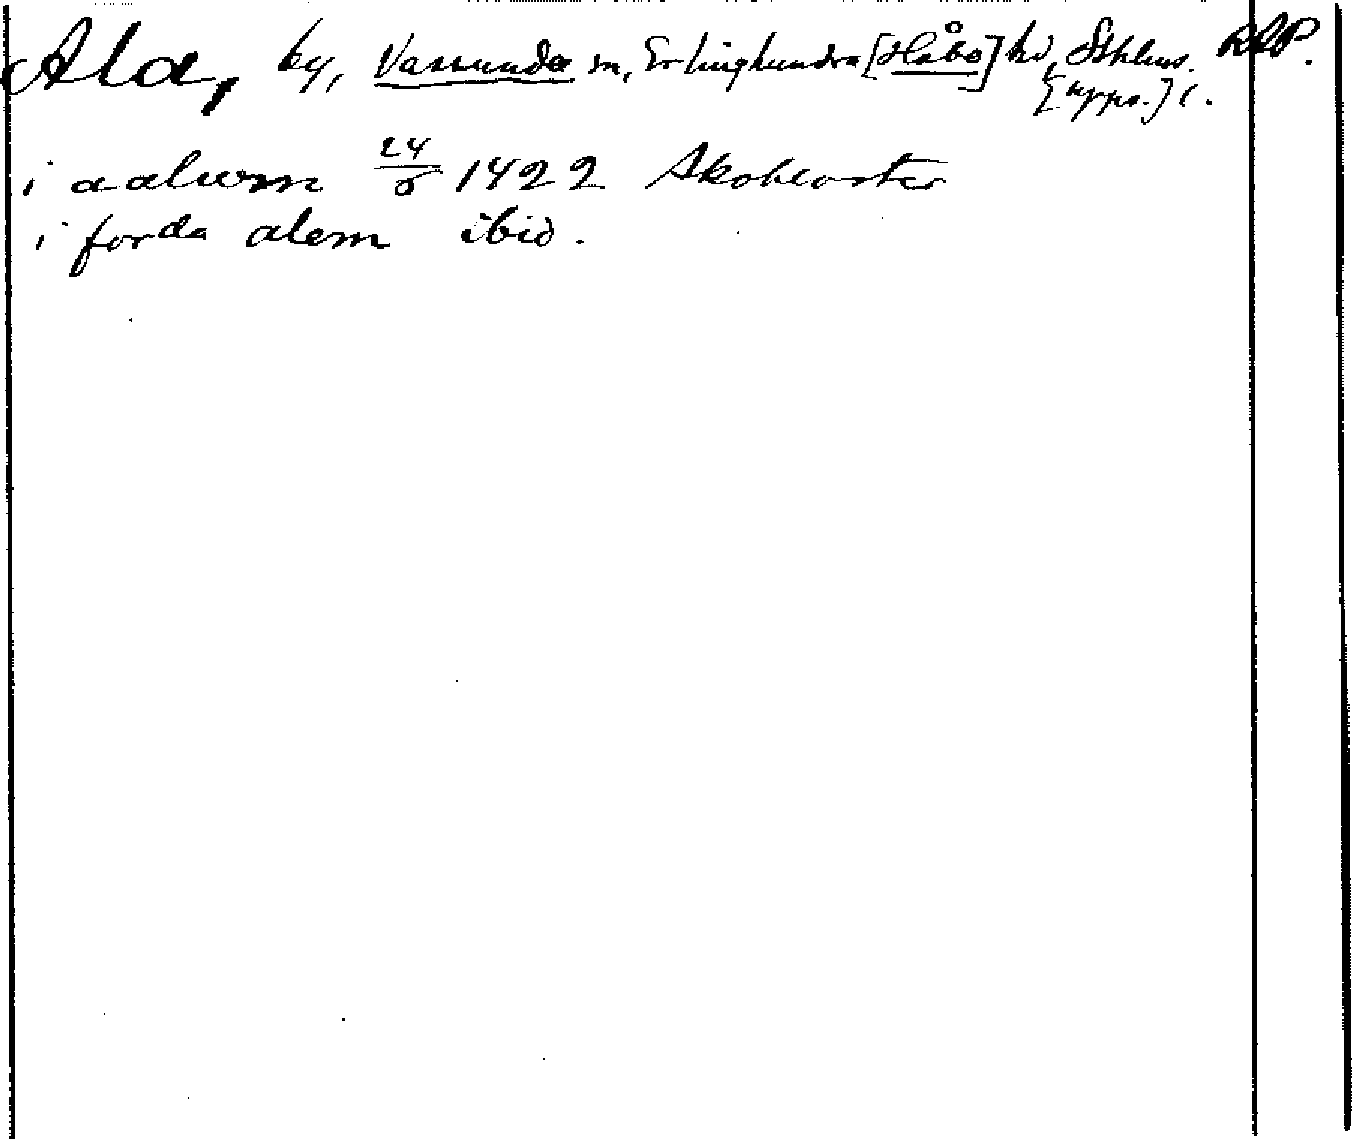 Ala, by, Vassunda sn, Erlinghundra [Håbo] hd, Sthlms. RAP.
[Upps.] l.
i aalwm 24/6 1422 Skokloster
i forda alem ibid.